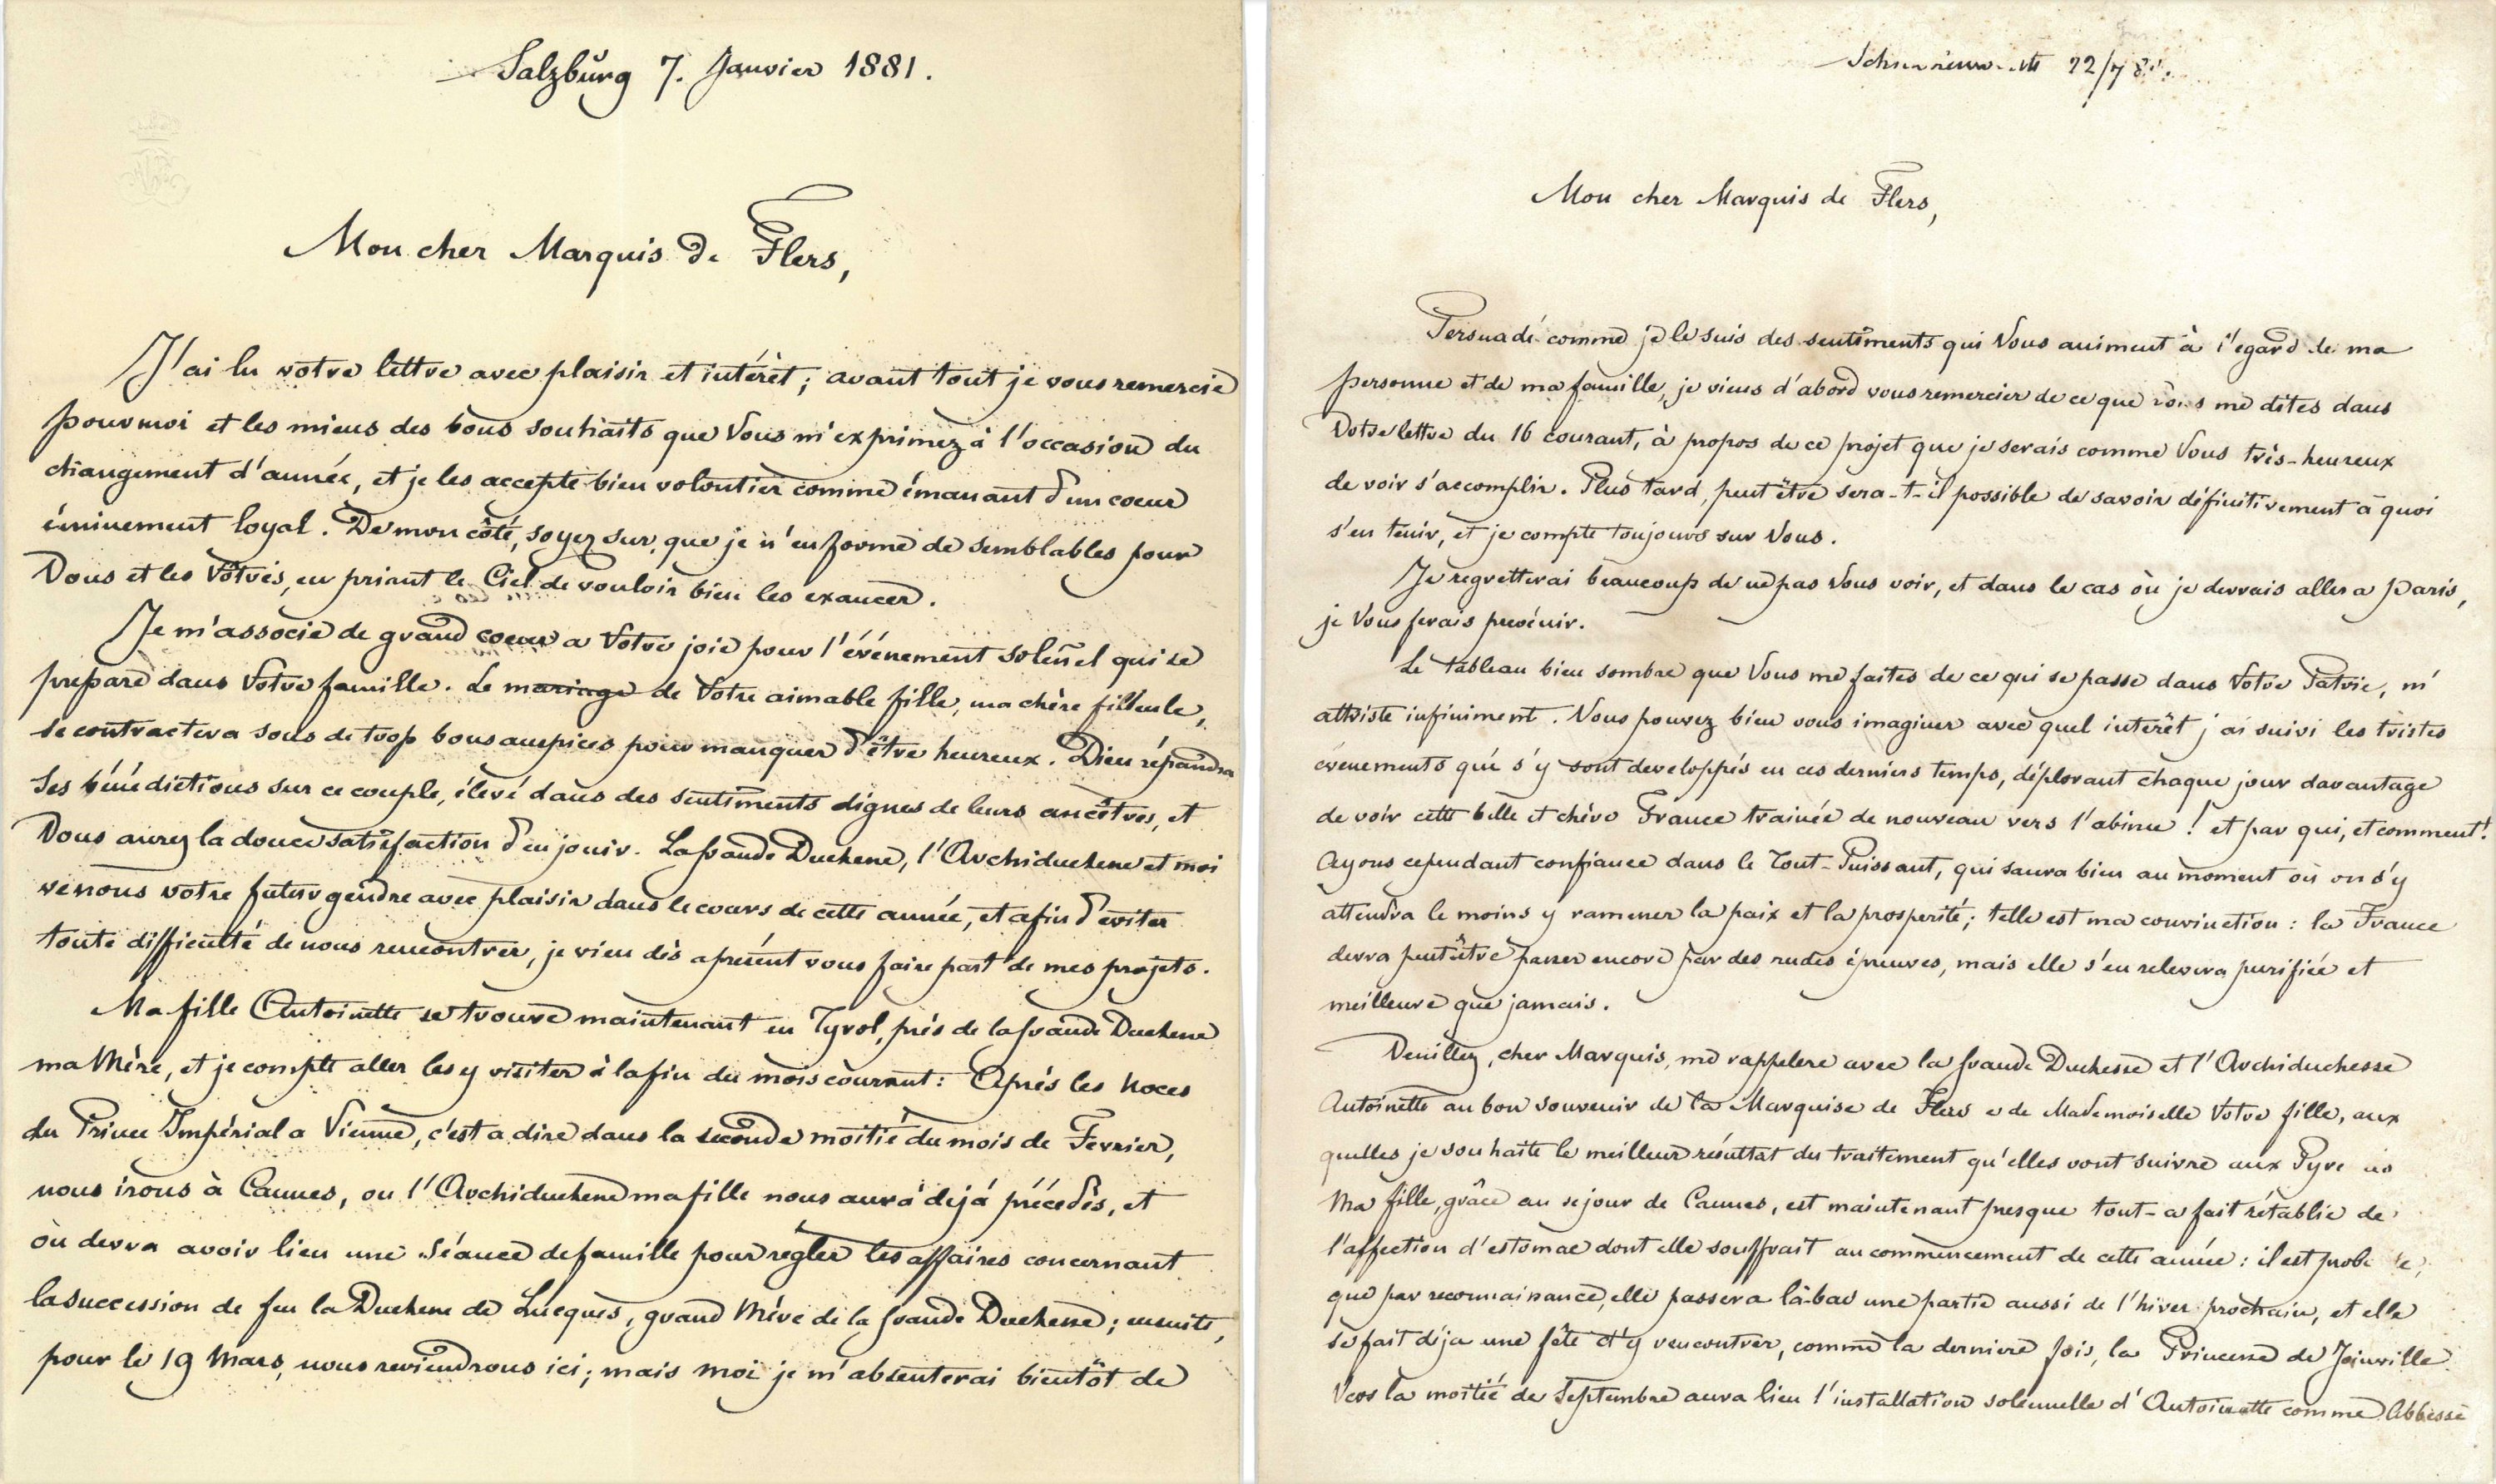 Salzbürg 7. Janvier 1881.
Mon cher Marquis de Flers,
J'ai lu votre lettre avec plaisir et intérèt; avant tout je vous remercie
pour moi et les miens des bons souhaits que Vous m'exprimez à l'occasion du
changement d'année, et je les accepte bien volontier comme émanant d'un coeur
éminement loyal. De mon côté, soyez sur, que je n'en forme de semblables pour
Vous et les Vôtres, en priant le Ciel de vouloir bien les exaucer.
Je m'associe de grand coeur a Votre joie pour l'événement solen̄el qui se
prepare dans Votre famille. Le mariage de Votre aimable fille, ma chère filleule,
se contractera sous de trop bons auspices pour manquer d'être heureux. Dieu répandra
Ses bénédictions sur ce couple, élevé dans des sentiments dignes de leurs ancêtres, et
Vous aurez la douce satisfaction d'en jouir. La Grande Duchesse, l'Archiduchesse et moi
venons votre futur gendre avec plaisir dans le cours de cette année, et afin d'eviter
toute difficulté de nous rencontrer, je vien dès apresént vous faire part de mes projets.
Ma fille Antoinette se trouve maintenant en Tyrol, près de la Grande Duchesse
ma Mère, et je compte aller les y visiter à la fin du mois courant: Après les Noces
du Prince Impérial a Vienne, c'est a dire dans la seconde moitié du mois de Fevrier,
nous irons à Cannes, ou l'Archiduchesse ma fille nous aura dejá précedés, et
où devra avoir lieu une Séance de famille pour règler les affaires concernant
la succession de feu la Duchesse de Lucques, grand Mère de la Grande Duchesse; ensuite,
pour le 19 Mars, nous reviendrons ici; mais moi je m'absenterai bientôt de
22/7
Mon cher Marquis de Flers,
Persuadé comme je le suis des sentiments qui Vous animent à l'egard de ma
personne et de ma famille, je viens d'abord vous remercier de ce que vous me dites dans
Votre lettre du 16 courant, à propos de ce projet que je serais comme Vous très-heureux
de voir s'accomplir. Plus tard, peut être sera-t-il possible de savoir définitivement à quoi
s'en tenir, et je compte toujours sur Vous.
Je regretterai beaucoup de ne pas Vous voir, et dans le cas où je devrais aller a Paris,
je Vous ferais prevénir.
Le tableau bien sombre que Vous me faites de ce qui se passe dans Votre Patrie, m'
attriste infiniment. Vous pouvez bien vous imaginer avec quel intérêt j'ai suivi les tristes
événements qui s'y sont developpés en ces derniers temps, déplorant chaque jour davantage
de voir cette belle et chère France trainée de nouveau vers l'abime! et par qui, et comment!
Ayons cependant confiance dans le Tout-Puissant, qui saura bien au moment où on s'y
attendra le moins y ramener la paix et la prosperité; telle est ma convinction: la France
devra peutêtre passer encore par des rudes épreuves, mais elle s'en relevera purifiée et
meilleure que jamais.
Veuillez, cher Marquis, me rappelere avec la Grande Duchesse et l'Archiduchesse
Antoinette au bon souvenir de la Marquise de Flers e de Mademoiselle Votre fille, aux
quelles je souhaite le meilleur résultat du traitement qu'elles vont suivre aux
Ma fille, grâce au sejour de Cannes, est maintenant presque tout-a fait rétablie de
l'affection d'estomac dont elle souffrait au commencement de cette année: il est
que par reconnaissance, elle passera là-bas une partie aussi de l'hiver prochain, et elle
se fait dèja une fête d'y rencontrer, comme la derniere fois, la Princesse de Joinville.
Vers la moitié de Septembre aura lieu l'installation solennelle d'Antoinette comme Abbesse